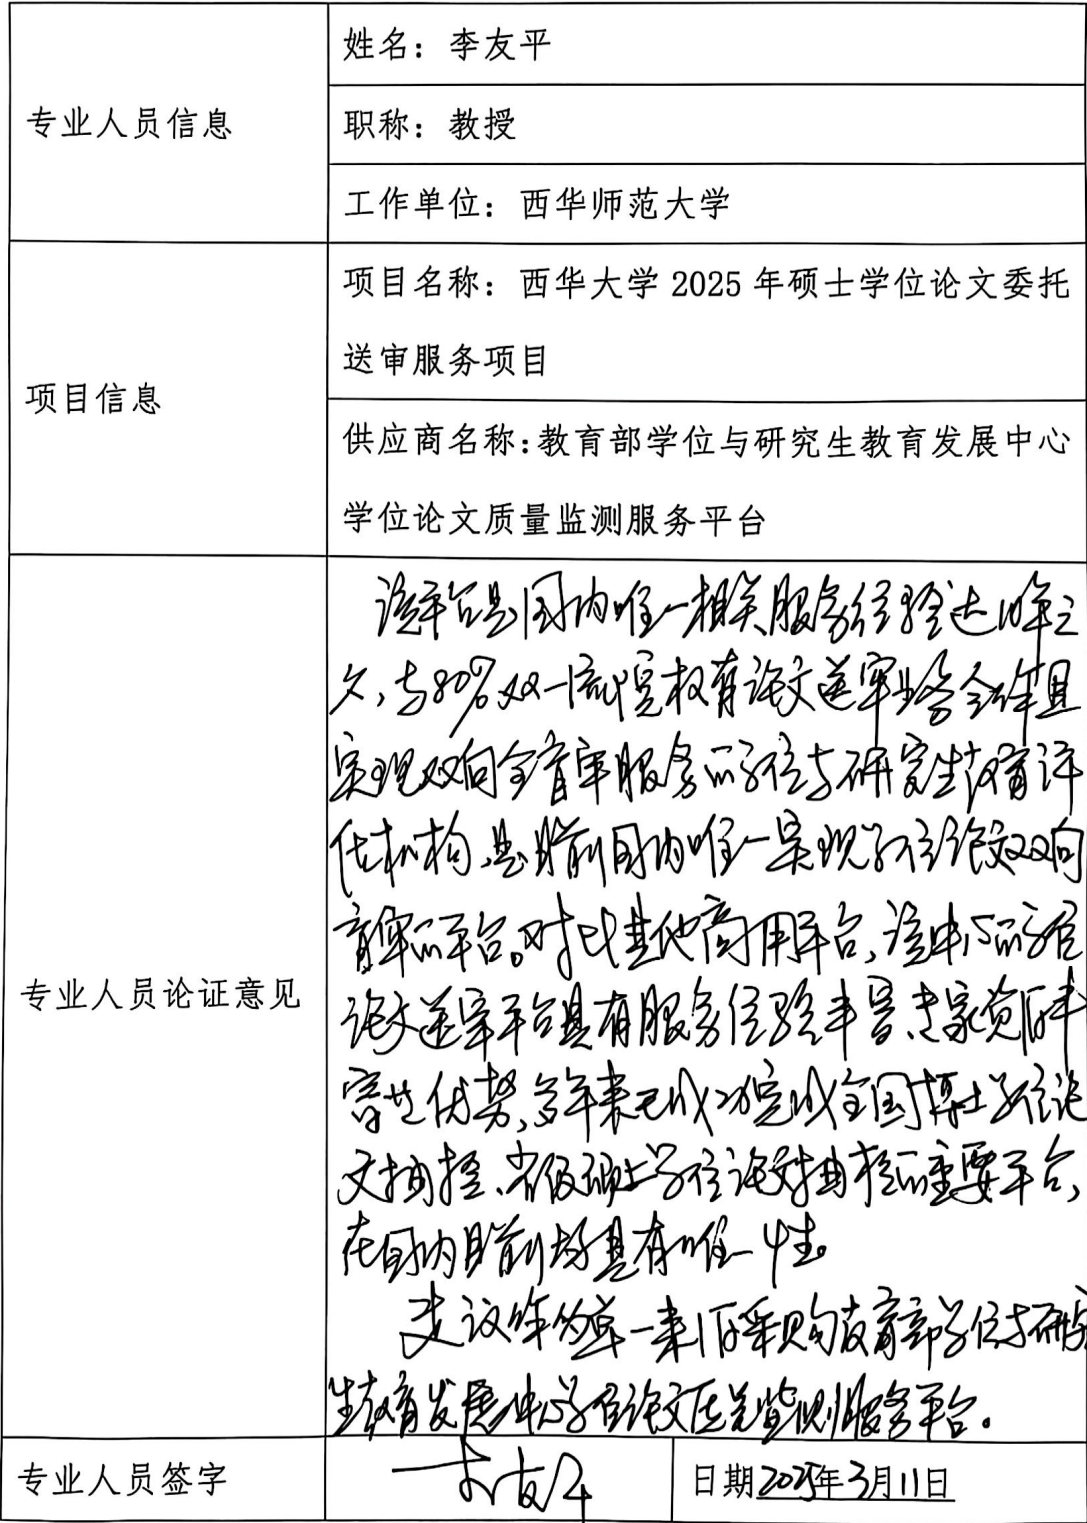 专业人员信息
姓名：李友平
职称：教授
工作单位：西华师范大学
项目信息
项目名称：西华大学 2025 年硕士学位论文委托
送审服务项目
供应商名称：教育部学位与研究生教育发展中心
学位论文质量监测服务平台
专业人员论证意见
该平台是国内唯一相关服务经验达10年之
久，与80%双一流高校有论文送审业务合作且
实现双向全盲审服务的学位与研究生教育评
估机构，是目前国内唯一实现学位论文双向
盲审的平台。对比其他商用平台，该中心的学位
论文送审平台具有服务经验丰富、专家资源丰
富等优势，多年来已成功完成全国博士学位论
文抽检、省级硕士学位论文抽检的重要平台，
在国内目前市场具有唯一性。
建议作为单一来源采购教育部学位与研究
生教育发展中心学位论文质量监测服务平台。
专业人员签字
李友平
日期2025年3月11日